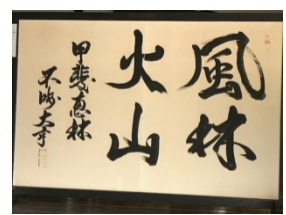 風林
火山
甲斐恵林
不識大寺